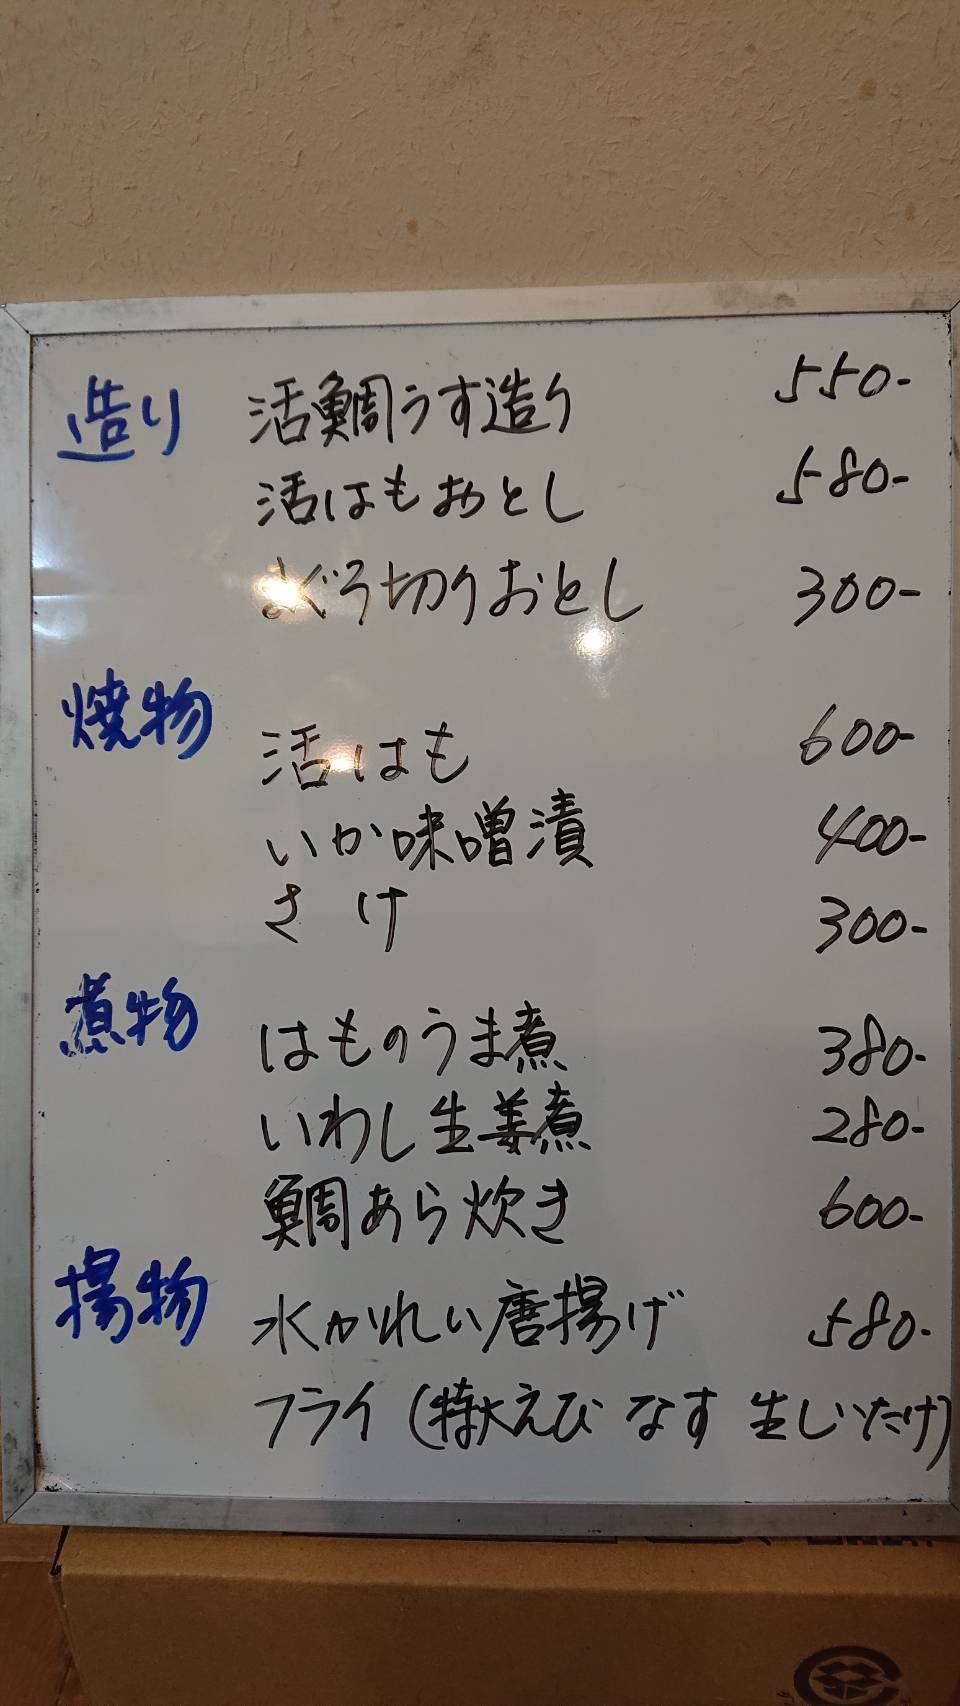 造り 活鯛うす造り 550-
活はもおとし 580-
まぐろ切りおとし 300-
焼物 活はも 600-
いか味噌漬 400-
さけ 300-
煮物 はものうま煮 380-
いわし生姜煮 280-
鯛あら炊き 600-
揚物 水かれい唐揚げ 580-
フライ(特大えび なす 生しいたけ)